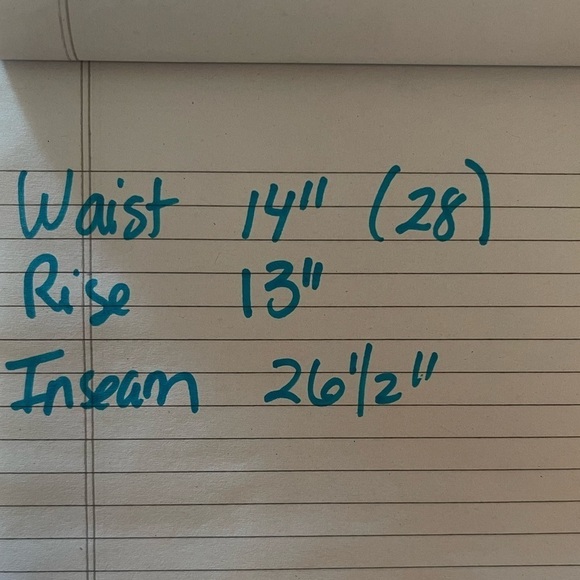 Waist 14" (28)
Rise 13"
Inseam 26 1/2"